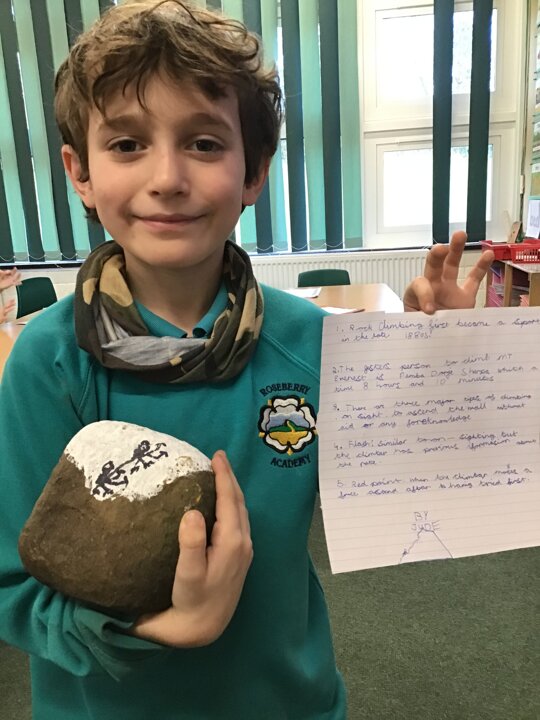 ROSEBERRY
ACADEMY
1. Rock climbing first became a sport
in the late 1880s!
2. The fastest person to climb MT
Everest is Pemba Dorje Sherpa which a
time 8 hours and 10 minutes
3. There are three major types of climbing
on sight to ascend the wall without
aid or any foreknowledge
4. Flash: Similar to on-sighting but
the climber has previous information about
the route.
5. Red point when the climber makes a
free ascend after having tried first:
BY
JUDE